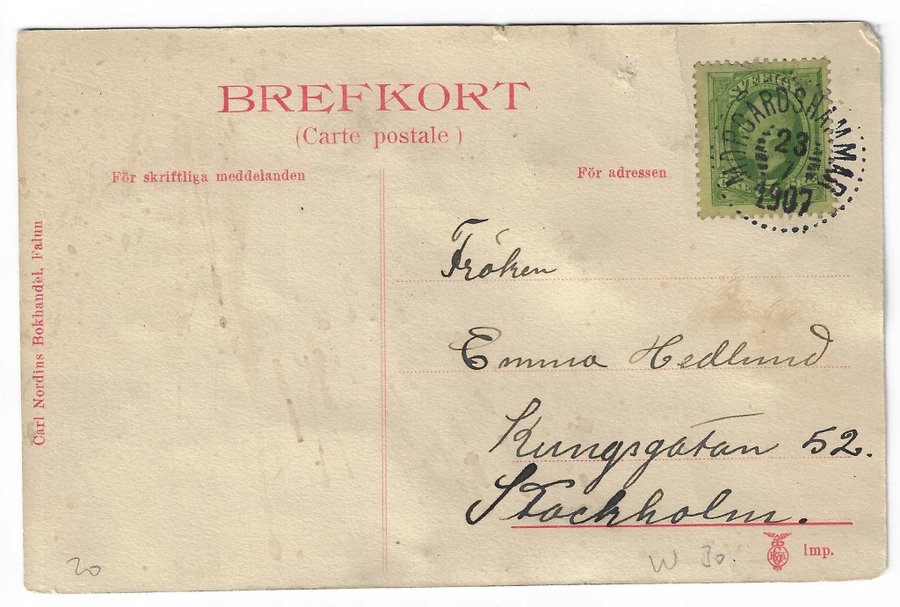 BREFKORT
(Carte postale)
För skriftliga meddelanden
För adressen
SVERIGE
MORGÅRDSHAMMAR
23
7
1907
Carl Nordins Bokhandel, Falun
Fröken
Emma Hedlund
Kungsgatan 52.
Stockholm.
Imp.
20
W 30.